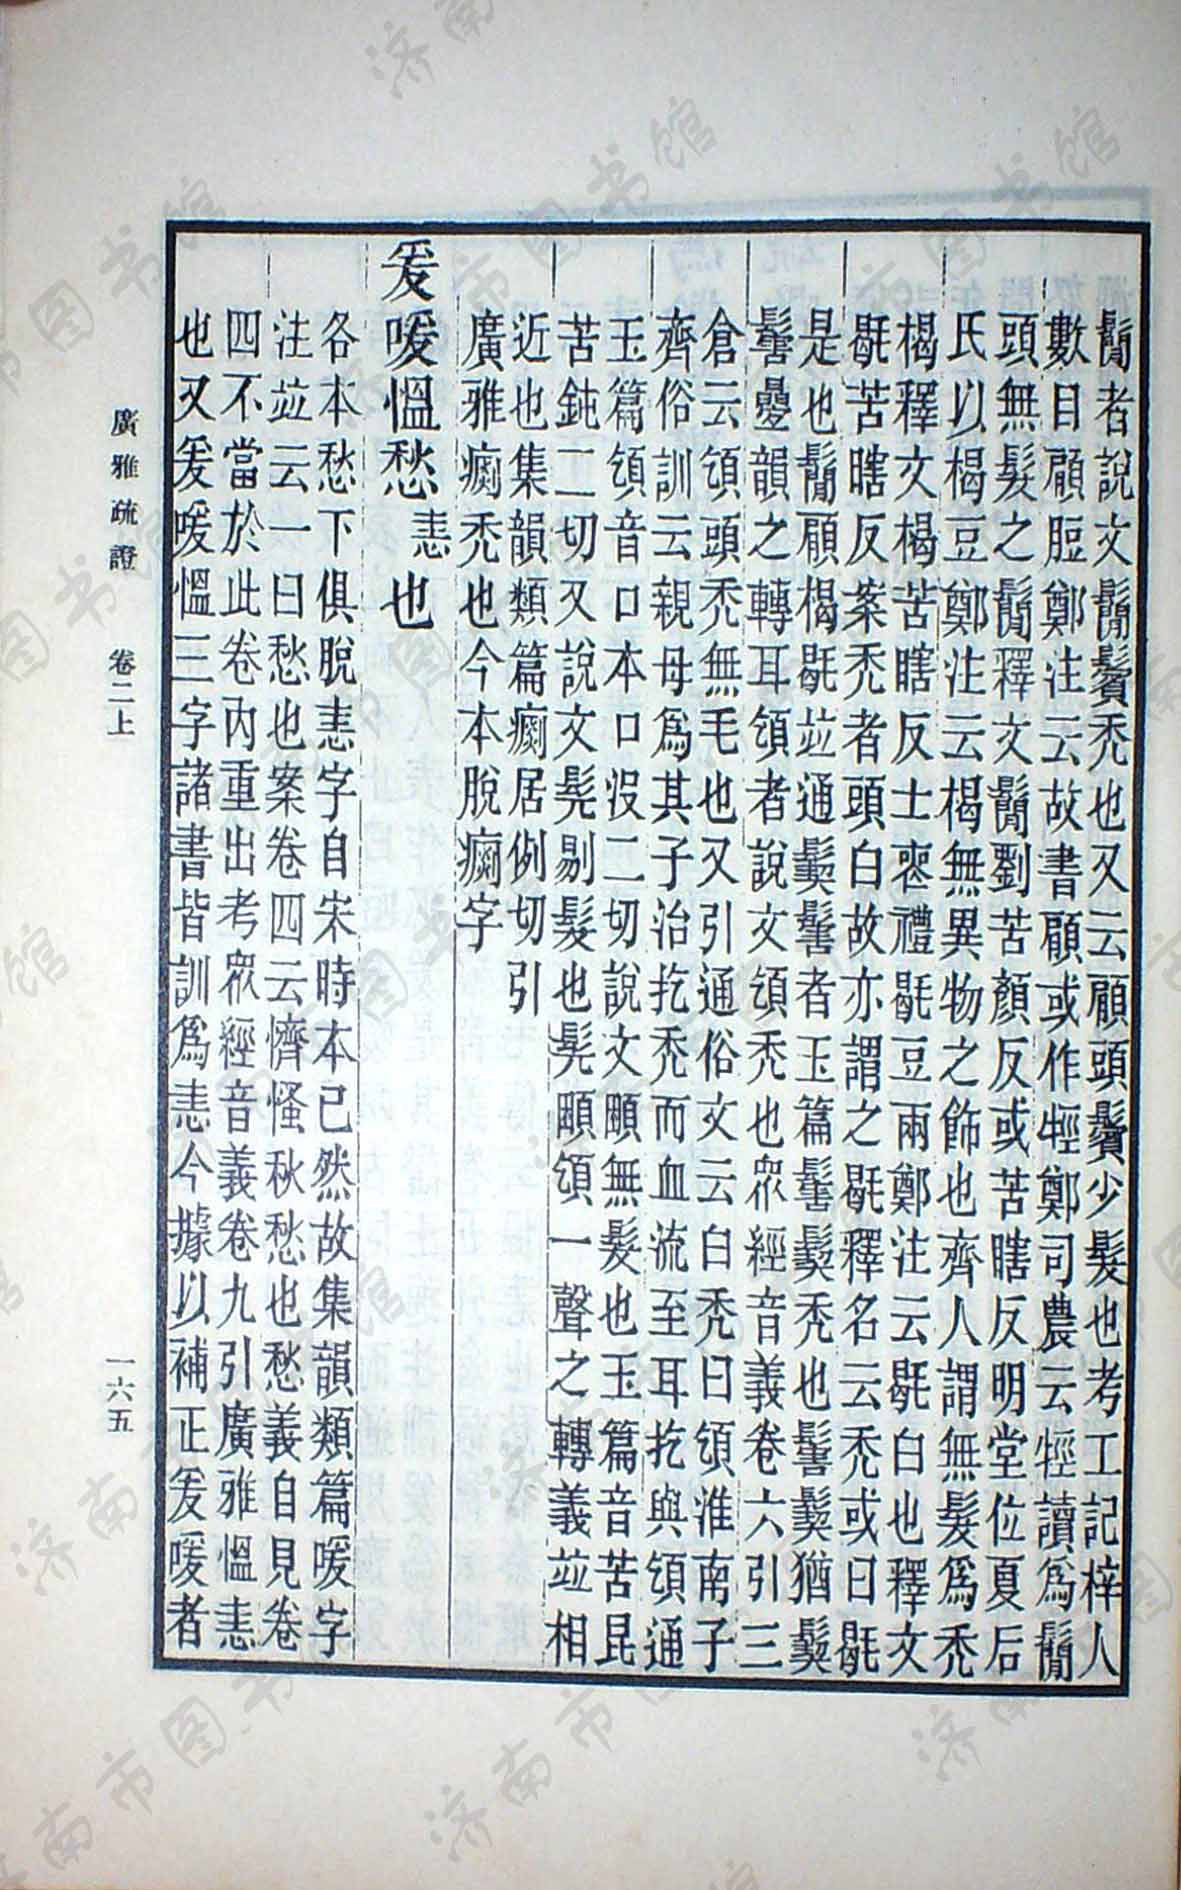 鬜者說文鬜鬢禿也又云顅頭鬢少髮也考工記梓人
數目顅脰鄭注云故書顅或作牼鄭司農云牼讀爲鬜
頭無髮之鬜釋文鬜劉苦顏反或苦瞎反明堂位夏后
氏以楬豆鄭注云楬無異物之飾也齊人謂無髮爲禿
楬釋文楬苦瞎反士喪禮毼豆兩鄭注云毼白也釋文
毼苦瞎反案禿者頭白故亦謂之毼釋名云禿或曰毼
是也鬜顅楬毼竝通䰎䯶者玉篇䯶䰎禿也䯶䰎猶䰎
䯶疊韻之轉耳頜者說文頜禿也眾經音義卷六引三
倉云頜頭禿無毛也又引通俗文云白禿曰頜淮南子
齊俗訓云親母爲其子治扢禿而血流至耳扢與頜通
玉篇頜音口本口沒二切說文頵無髮也玉篇音苦昆
苦鈍二切又說文髡鬀髮也髡頵頜一聲之轉義竝相
近也集韻類篇瘸居例切引
廣雅瘸禿也今本脫瘸字
爰嗳愠愁恚也
各本愁下俱脫恚字自宋時本已然故集韻類篇嗳字
注竝云一曰愁也案卷四云懠慅秋愁也愁義自見卷
四不當於此卷內重出考眾經音義卷九引廣雅愠恚
也又爰嗳愠三字諸書皆訓爲恚今據以補正爰嗳者
廣雅疏證 卷二上
一六五